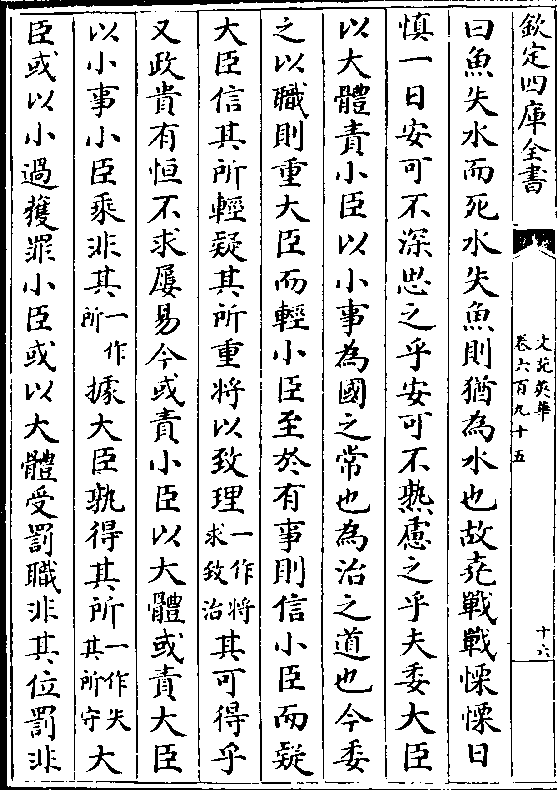 欽定四庫全書
文苑英華
卷六百九十五
十六
曰魚失水而死水失魚則猶為水也故堯戰戰慄慄日
慎一日安可不深思之乎安可不熟慮之乎夫委大臣
以大體責小臣以小事為國之常也為治之道也今委
之以職則重大臣而輕小臣至於有事則信小臣而疑
大臣信其所輕疑其所重將以致理一作將求致治其可得乎
又政貴有恒不求屢易今或責小臣以大體或責大臣
以小事小臣乘非其所一作據大臣孰得其所一作失其所守大
臣或以小過獲罪小臣或以大體受罰職非其位罰非